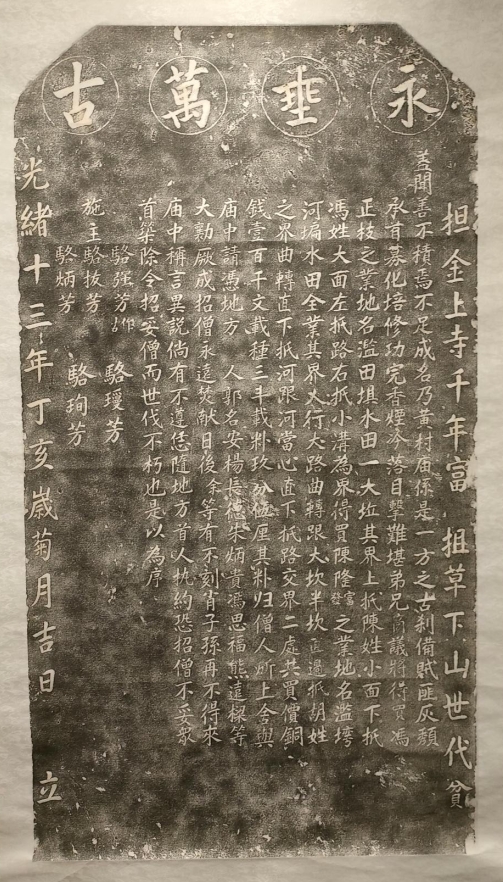 永垂萬古
担金上寺千年富　担草下山世代貧
蓋聞善不積焉不足成名乃黃村庙係是一方之古刹備賊匪灰頹
承首募化培修功完香煙冷落目擊難堪弟兄商議將得買馮
正枝之業地名濫田埧水田一大坵其界上抵陳姓小面下抵
馮姓大面左抵路右抵小溝為界得買陳隆發富之業地名濫塆
河塥水田全業其界火行大路曲轉跟大坎半坎直過抵胡姓
之界曲轉直下抵河跟河當心直下抵路交界二處共買價銅
錢壹百千文載種三斗載粎玖分伍厘其粎归僧人所上舍與
庙中請憑地方　人郭名安楊長　朱炳貴馮思福熊遠樑等
大勷厥成招僧永遠焚献日後余等有不刻肖子孫再不得來
庙中稱言異說倘有不遵恁隨地方首人执約恐招僧不妥衆
首築除令招妥僧而世代不朽也是以為序
駱强芳作　駱瓊芳
施主駱拔芳
駱炳芳　駱珣芳
光緒十三年丁亥歲菊月吉日　立